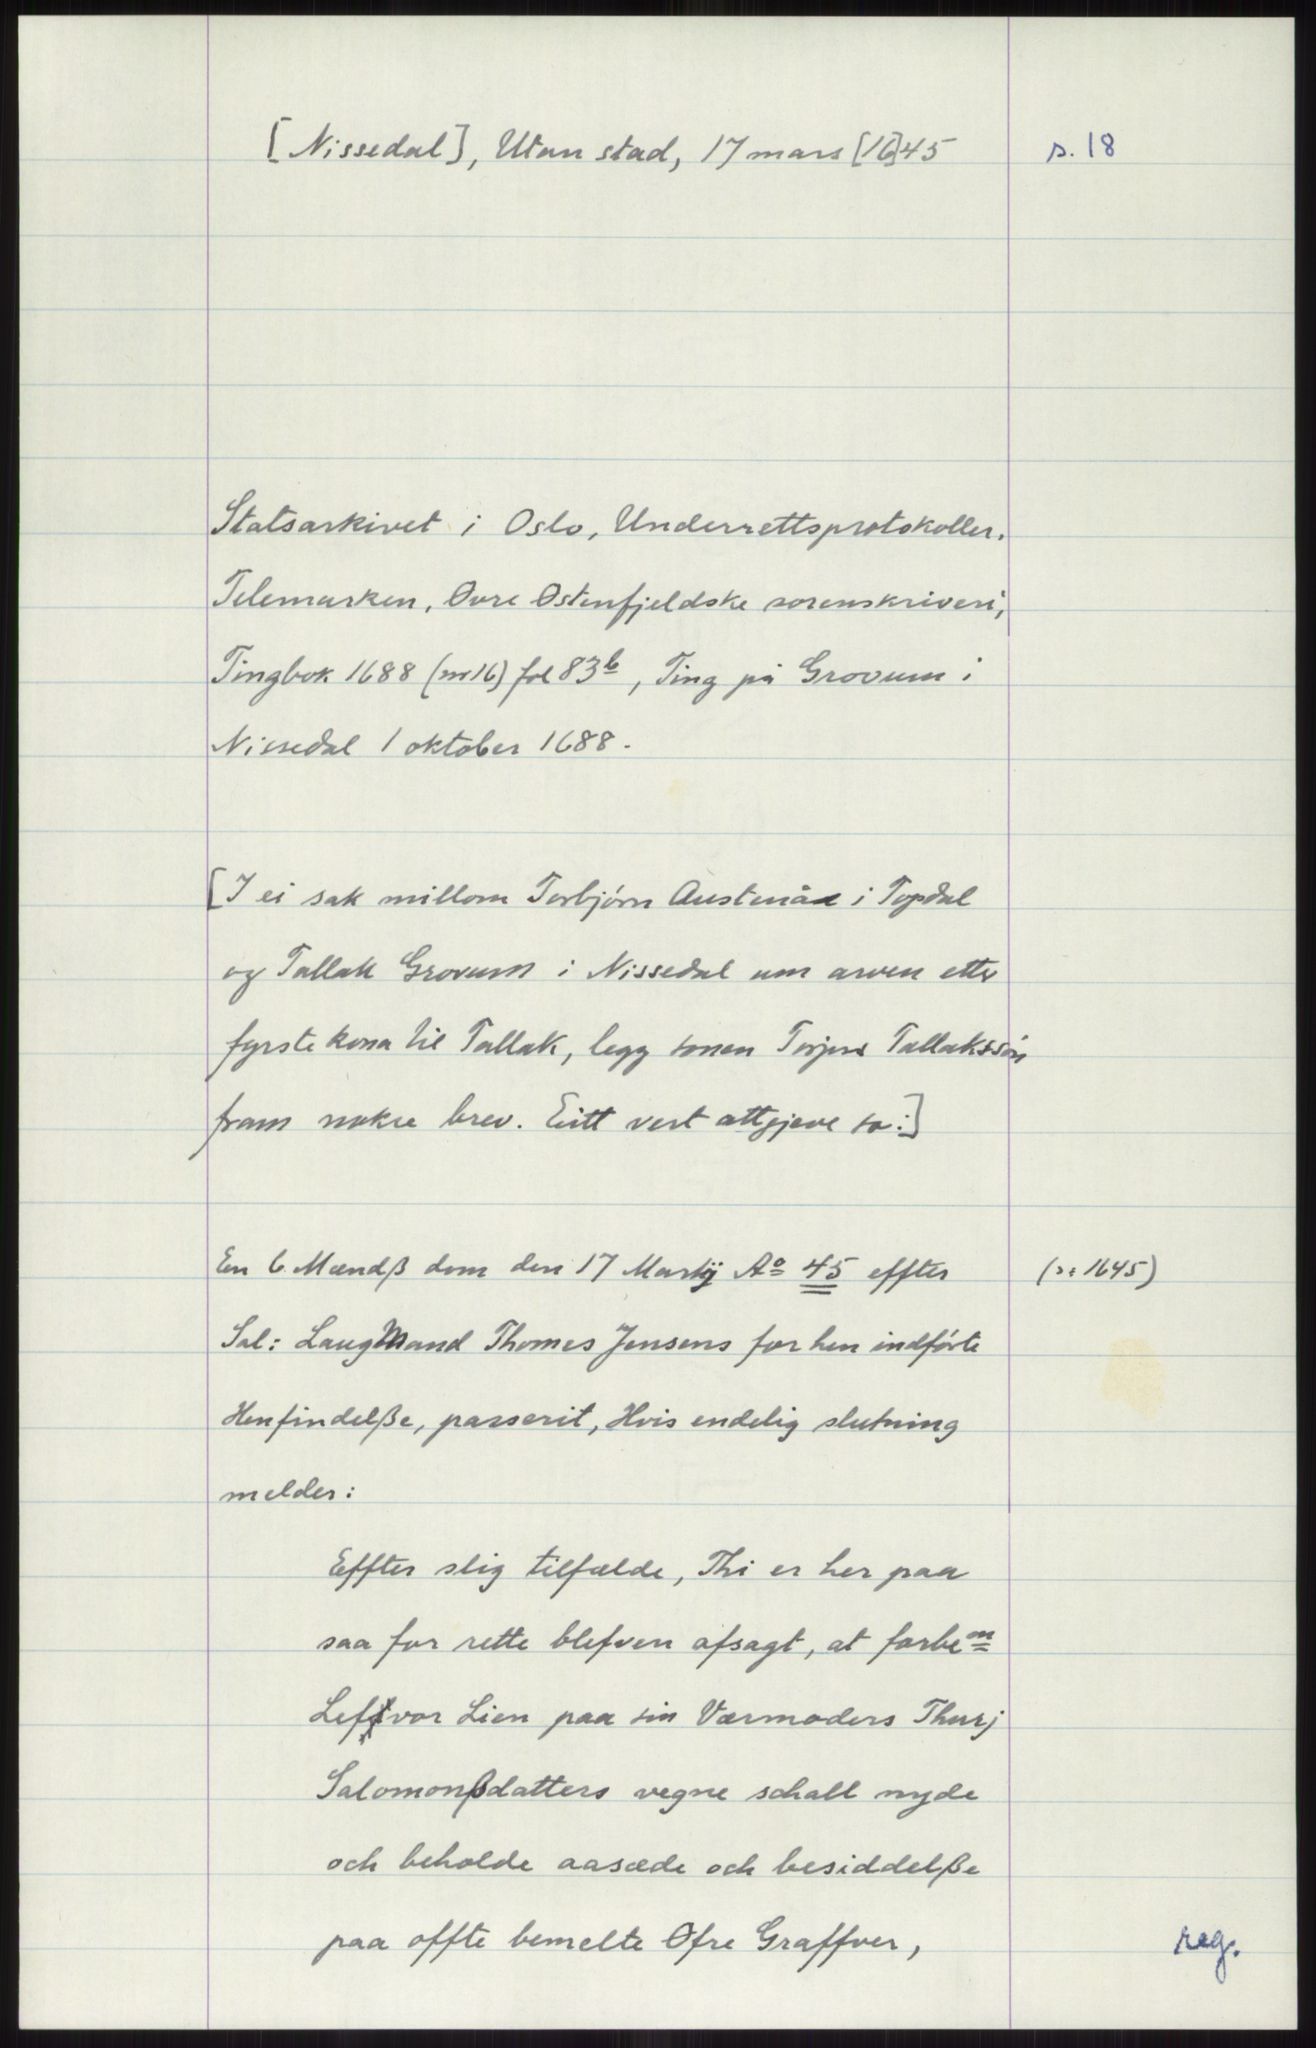 [Nissedal], Utan stad, 17 mars [16]45 s. 18
Statsarkivet i Oslo, Underrettsprotokoller.
Telemarken, Øvre Østenfjeldske sorenskriveri,
Tingbok 1688 (nr 16) fol 83b, Ting på Grovum i
Nissedal 1 oktober 1688.
[I ei sak millom Torbjörn Austenåa i Topdal
og Tallak Grovum i Nissedal um arven etter
fyrste kona til Tallak, legg sonen Torjus Tallaksson
fram nokre brev. Eitt vert attgjeve so:]
En 6 Mændß dom den 17 Martij Ao 45 effter (ɔ: 1645)
Sal: LaugMand Thomes Jensens for hen indförte
Henfindelße, passerit, Hvis endelig slutning
melder:
Effter slig tilfælde, Thi er her paa
saa for rette blefven afsagt, at forbem
Leffvor Lien paa sin Værmoders Thurj
Salomonßdatters vegne schall nyde
och beholde aasæde och besiddelße
paa offte bemelte Øfre Graffver,
reg.